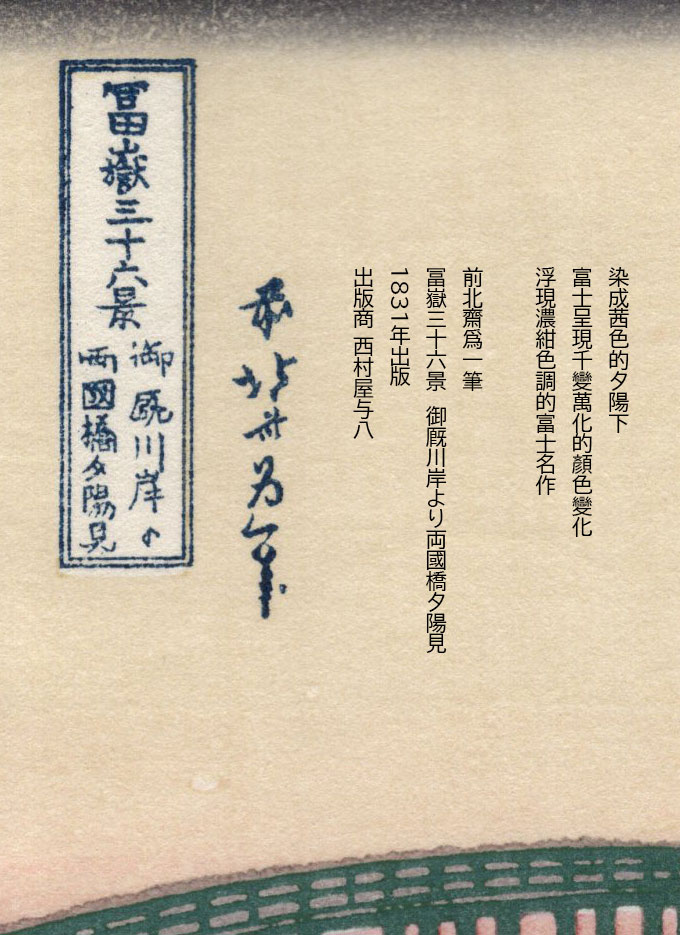 染成茜色的夕陽下
富士呈現千變萬化的顏色變化
浮現濃紺色調的富士名作
前北齋爲一筆
冨嶽三十六景 御厩川岸より両國橋夕陽見
1831年出版
出版商 西村屋与八
前北斎為一筆
冨嶽三十六景
御厩川岸ゟ
両國橋夕陽見